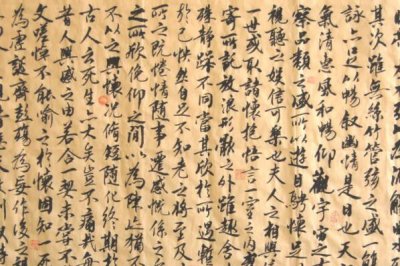 其次雖無絲竹管弦之盛一觴
詠亦足以暢叙幽情是日也天
氣清惠風和暢仰觀宇宙之
察品類之盛所以遊目騁懷足
視聽之娛信可樂也夫人之相與
一世或取諸懷抱悟言一室之內
寄所託放浪形骸之外雖趣舍
殊靜躁不同當其欣於所遇暫
於己怏然自足不知老之將至及
所之既惓情隨事遷感慨係之
之所欣俛仰之間以為陳迹猶
不以之興懷況脩短隨化終期
古人云死生亦大矣豈不痛哉每
昔人興感之由若合一契未嘗不
文嗟悼不能喻之於懷固知一死
為虛誕齊彭殤為妄作後之